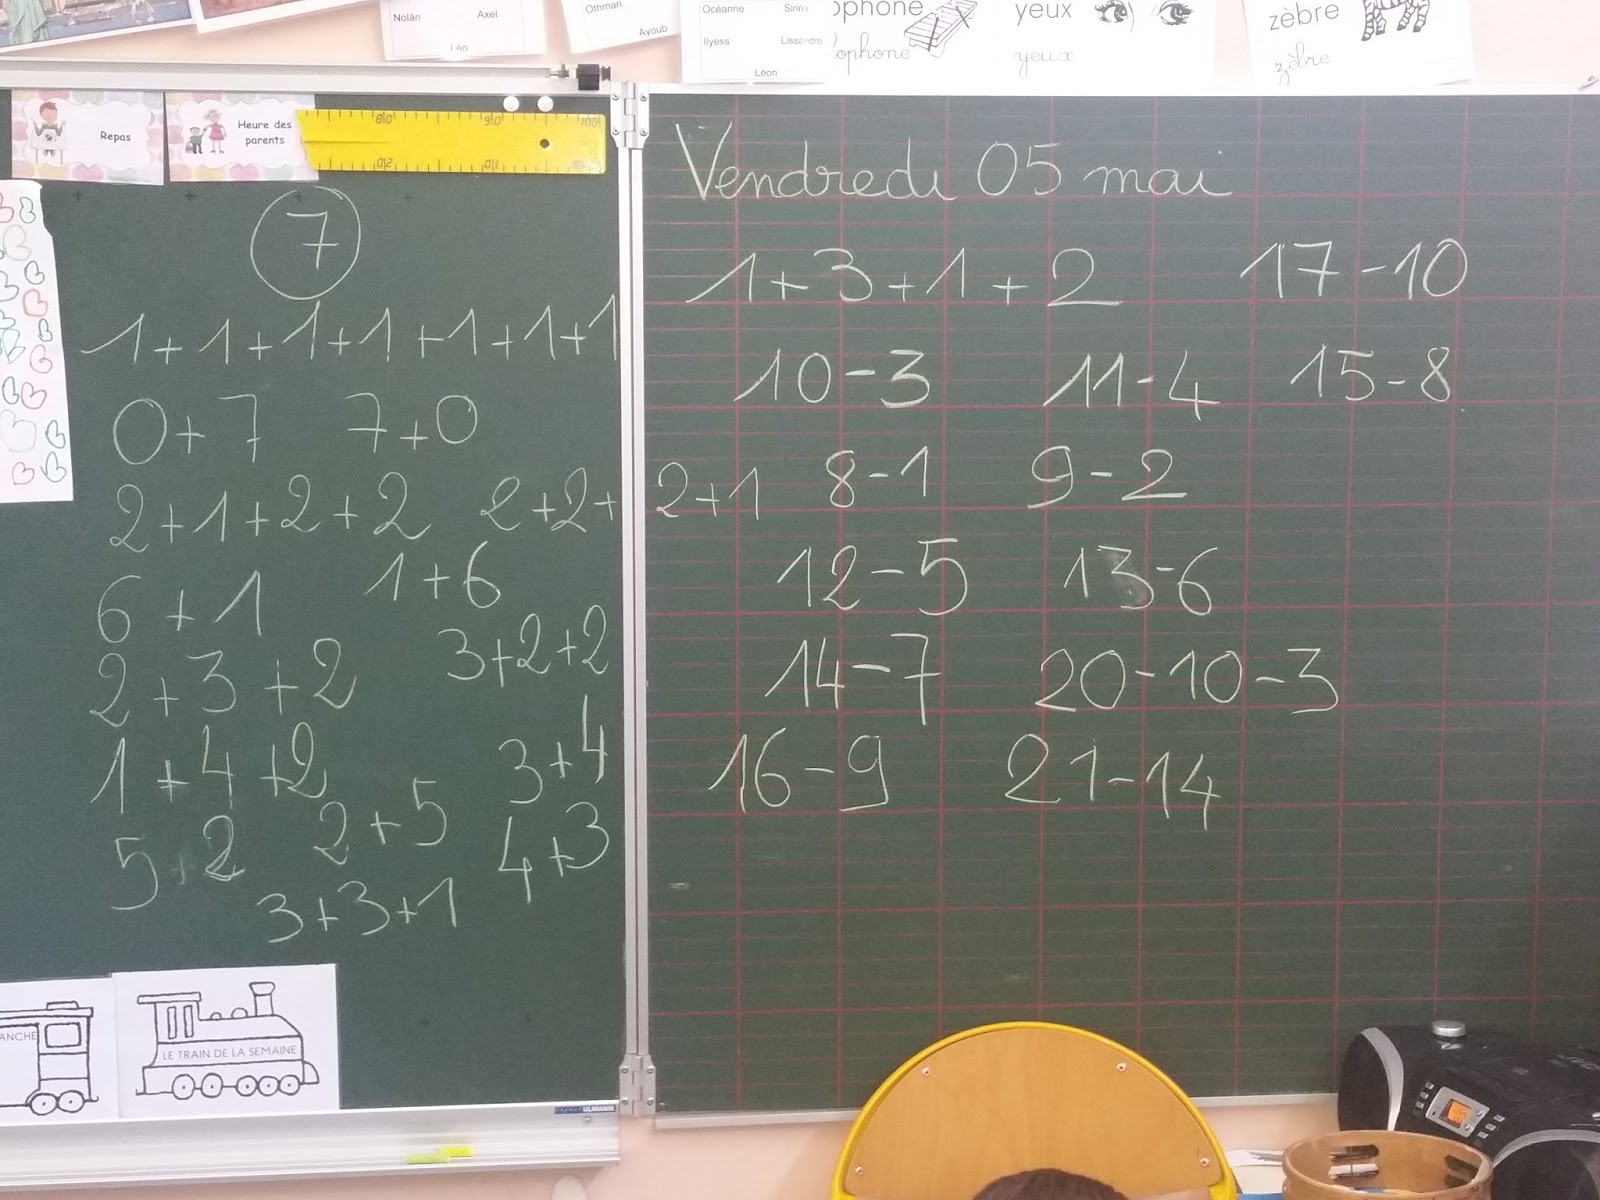 Nolàn Axel
Léo
Othman
Ayoub
Océanne
Ilyess Lissandro
Léon
ophone
ophone
yeux
yeux
zèbre
zèbre
Repas
Heure des
parents
80 90 100
20 10
7
1+1+1+1+1+1+1
0+7 7+0
2+1+2+2 2+2+2+1
6+1 1+6
2+3+2 3+2+2
1+4+2 3+4
5+2 2+5 4+3
3+3+1
ANCHE
LE TRAIN DE LA SEMAINE
ULMANN
Vendredi 05 mai
1+3+1+2 17-10
10-3 11-4 15-8
8-1 9-2
12-5 13-6
14-7 20-10-3
16-9 21-14